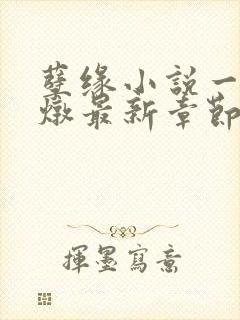 孽缘小説一
燉最新章節
揮墨寫意